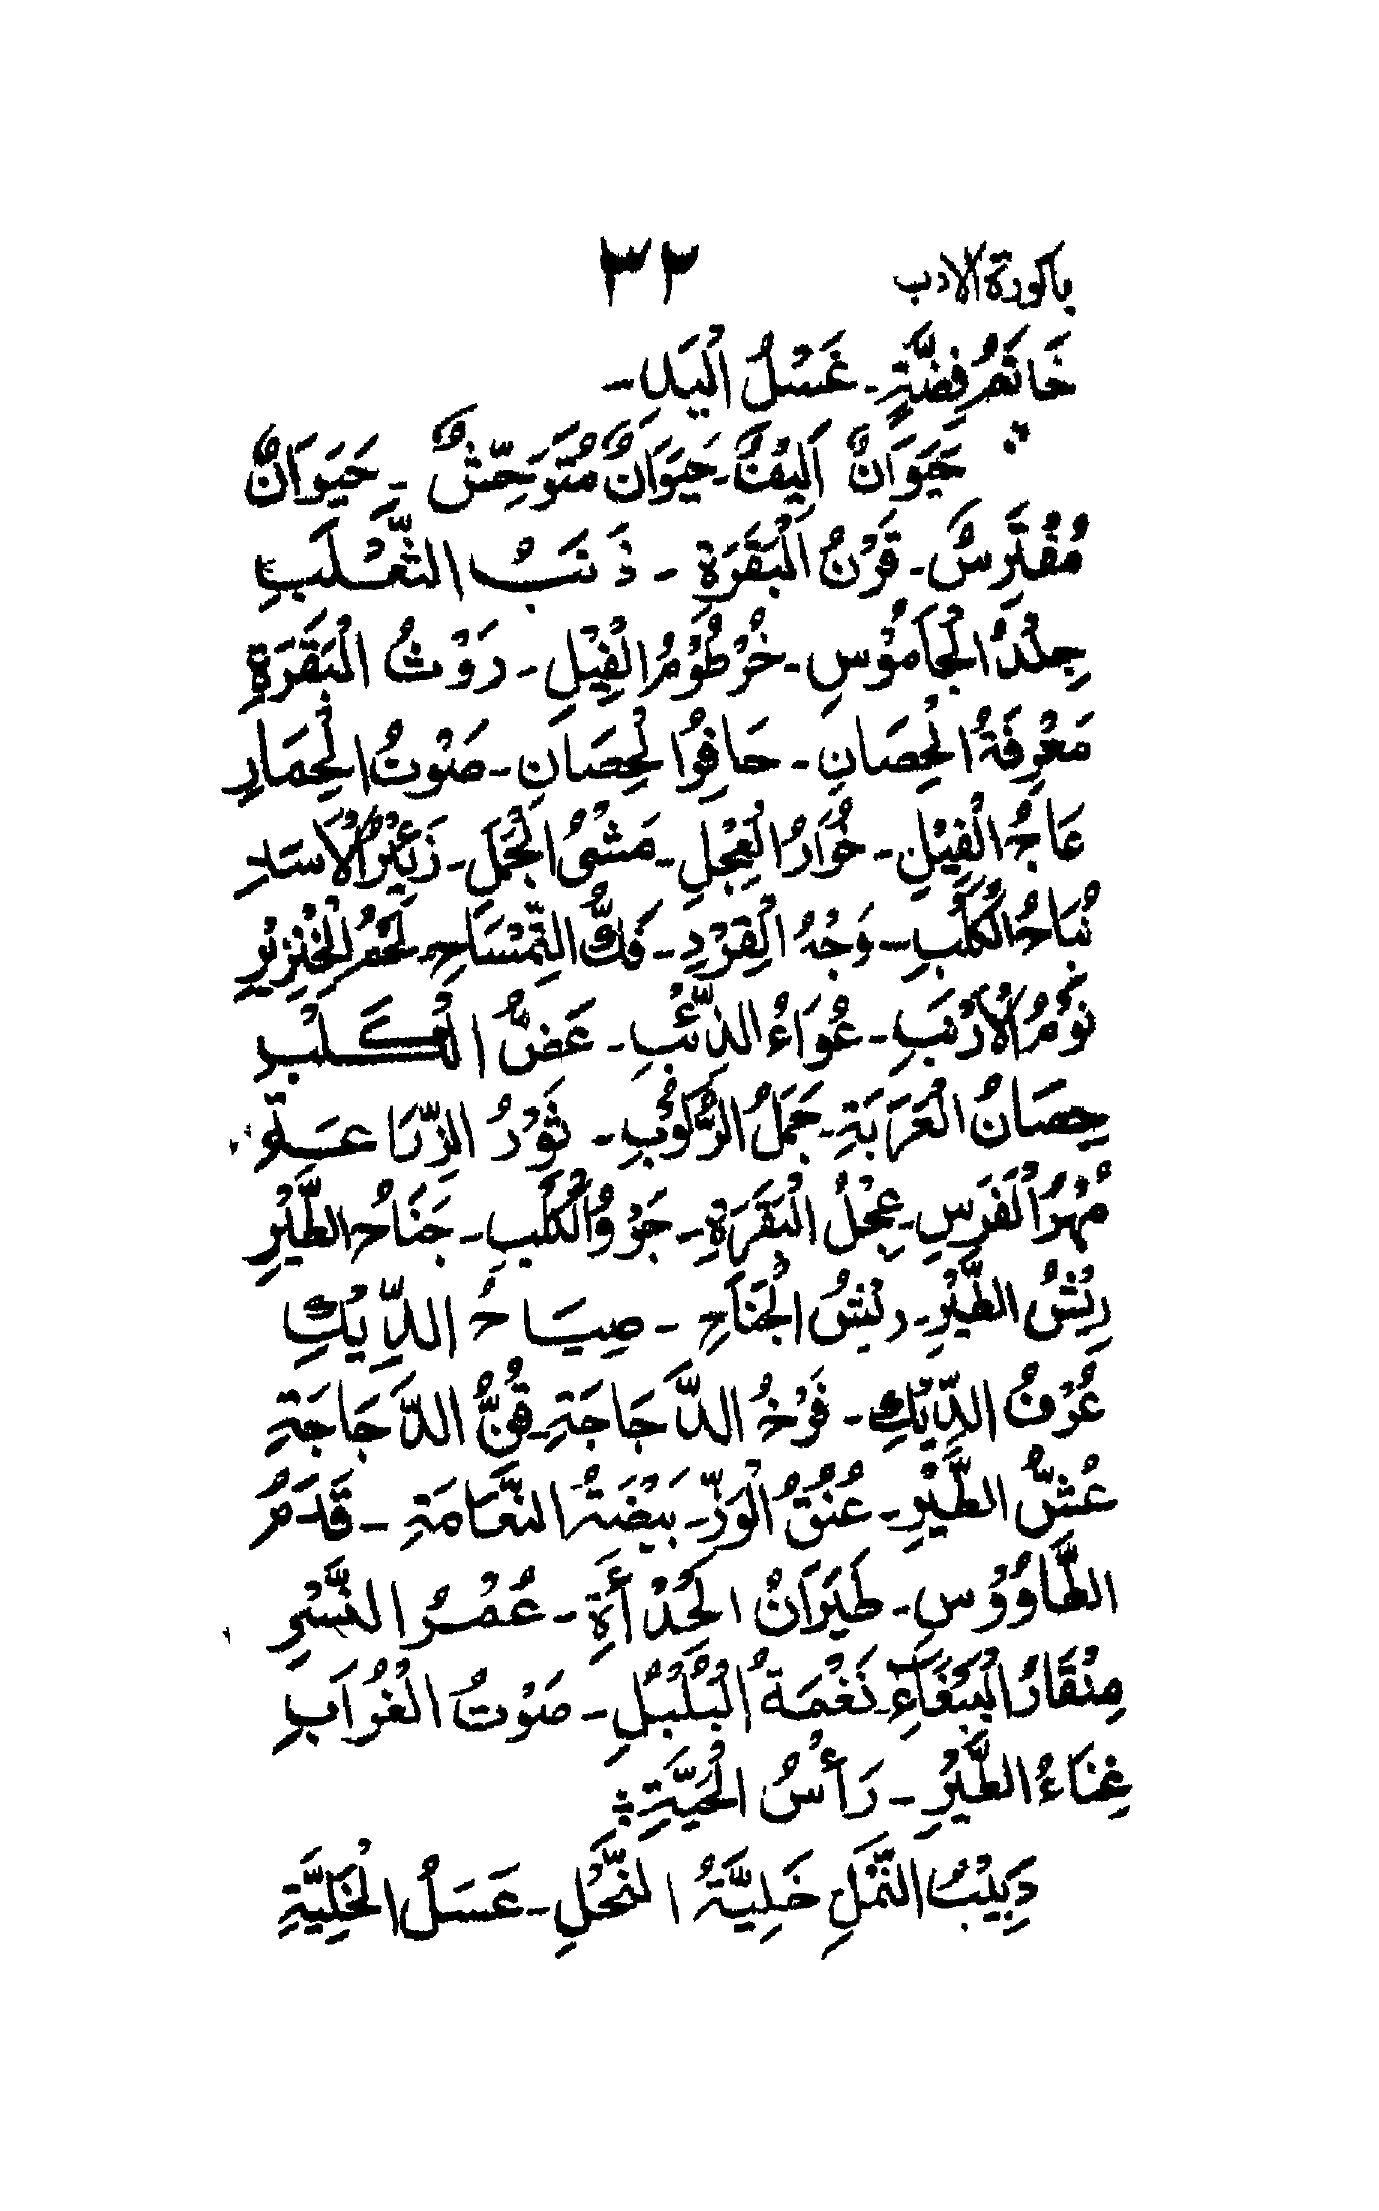 باكورة الادب ٣٢
خَاتَمُ فِضَّةٍ۔ غَسْلُ الْيَدِ۔
حَيَوَانٌ اَلِيْفٌ۔ حَيَوَانٌ مُتَوَحِّشٌ ۔ حَيَوَانٌ
مُفْتَرِسٌ۔ قَرْنُ الْبَقَرَةِ ۔ ذَنَبُ الثَّعْلَبِ
جِلْدُ الْجَامُوْسِ۔ خُرْطُوْمُ الْفِيْلِ۔ رَوْثُ الْبَقَرَةِ
مَعْرِفَةُ الْحِصَانِ۔ حَافِرُ الْحِصَانِ۔ صَوْتُ الْحِمَارِ
عَاجُ الْفِيْلِ۔ خُوَارُ الْعِجْلِ۔ مَشْىُ الْجَمَلِ۔ زَئِيْرُ الْاَسَدِ
نُبَاحُ الْكَلْبِ۔ وَجْهُ الْقِرْدِ۔ فَكُّ التِّمْسَاحِ۔ لَحْمُ الْخِنْزِيْرِ
نَوْمُ الْاَرْنَبِ۔ عُوَاءُ الذِّئْبِ۔ عَضُّ الْكَلْبِ
حِصَانُ الْعَرَبَةِ۔ جَمَلُ الرُّكُوْبِ۔ ثَوْرُ الزِّرَاعَةِ
مُهْرُ الْفَرَسِ۔ عِجْلُ الْبَقَرَةِ۔ جَرْوُ الْكَلْبِ۔ جَنَاحُ الطَّيْرِ
رِيْشُ الطَّيْرِ۔ رِيْشُ الْجَنَاحِ ۔ صِيَاحُ الدِّيْكِ
عُرْفُ الدِّيْكِ۔ فَرْخُ الدَّجَاجَةِ۔ قُنُّ الدَّجَاجَةِ
عُشُّ الطَّيْرِ۔ عُنُقُ الْوَزِّ۔ بَيْضَةُ النَّعَامَةِ ۔ قَدَمُ
الطَّاوُوْسِ۔ طَيَرَانُ الْحُدْأَةِ۔ عُمْرُ النَّسْرِ
مِنْقَارُ الْبَبَّغَاءِ۔ نَغْمَةُ الْبُلْبُلِ۔ صَوْتُ الْغُرَابِ
غِنَاءُ الطَّيْرِ۔ رَأْسُ الْحَيَّةِ؞
دَبِيْبُ النَّمْلِ خَلِيَّةُ النَّحْلِ۔ عَسَلُ الْخَلِيَّةِ